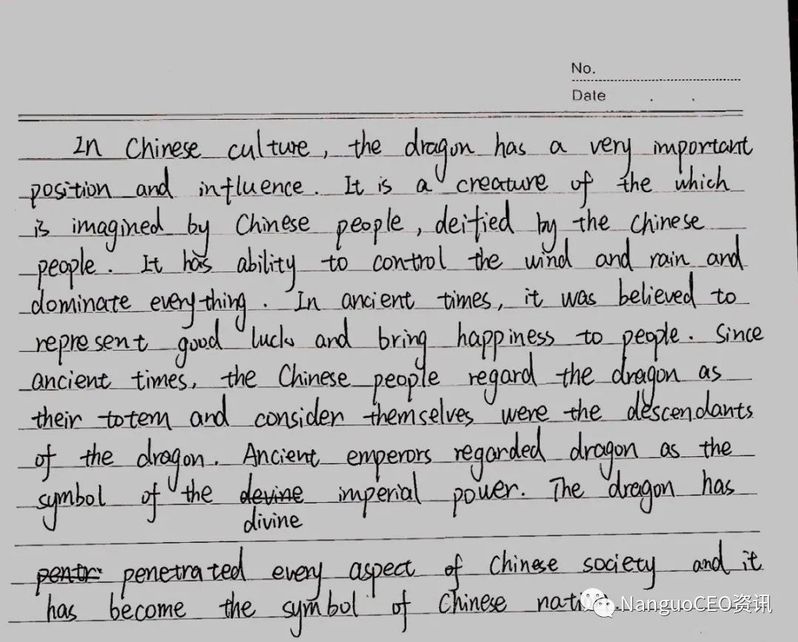 No.
Date . .
In Chinese culture, the dragon has a very important
position and influence. It is a creature of the which
is imagined by Chinese people, deified by the Chinese
people. It has ability to control the wind and rain and
dominate everything. In ancient times, it was believed to
represent good luck and bring happiness to people. Since
ancient times, the Chinese people regard the dragon as
their totem and consider themselves were the descendants
of the dragon. Ancient emperors regarded dragon as the
symbol of the devine imperial power. The dragon has
divine
pentr penetrated every aspect of Chinese society and it
has become the symbol of Chinese
NanguoCEO资讯